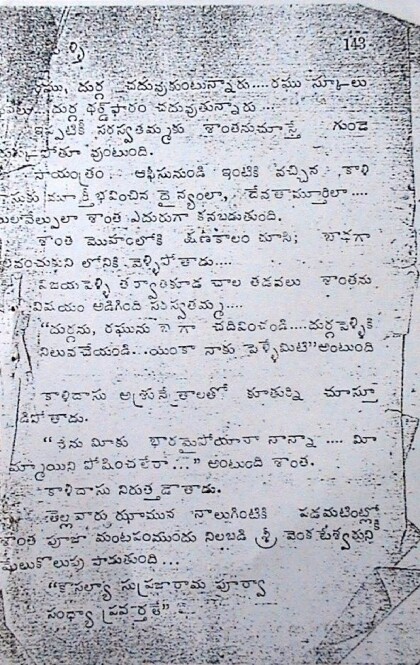 143
దుర్గ చదువుకుంటున్నారు.... రఘు స్కూలు
దుర్గ థర్డ్‌ఫారం చదువుతున్నారు ...
ఇప్పటికీ సరస్వతమ్మకు శాంతనుచూస్తే గుండె
పోతూ వుంటుంది.
సాయంత్రం ఆఫీసునుండి ఇంటికి వచ్చిన కాళి
దాసుకు మూర్తీభవించిన దైన్యంలా, దేవతామూర్తిలా ....
శాంత ఎదురుగా కనబడుతుంది.
శాంత మొహంలోకి క్షణకాలం చూసి; బాధగా
లోనికి వెళ్ళిపోతాడు....
విజయపెళ్ళి తర్వాతకూడ చాల తడవలు శాంతను
విషయం అడిగింది సరస్వతమ్మ....
"దుర్గను, రఘును బాగా చదివించండి .... దుర్గపెళ్ళికి
నిలువచేయండి...యింకా నాకు పెళ్ళేమిటి" అంటుంది
కాళిదాసు అశ్రునేత్రాలతో కూతుర్ని చూస్తూ
"నేను మీకు భారమైపోయానా నాన్నా .... మీ
పోషించలేరా ..." అంటుంది శాంత.
కాళిదాసు నిరుత్తరుడౌతాడు.
తెల్లవారుఝామున నాలుగింటికి పడమటింట్లో
శాంత పూజా మంటపంముందు నిలబడి శ్రీ వెంకటేశ్వరుని
మేలుకొలుపు పాడుతుంది ...
"కౌసల్యా సుప్రజారామ పూర్వా
సంధ్యా ప్రవర్తతే" ...